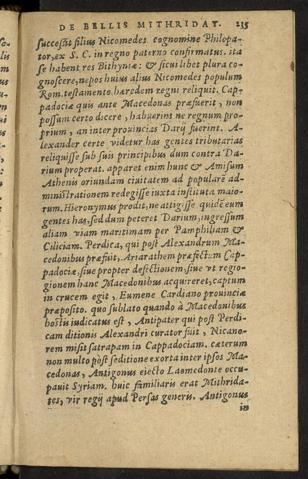 DE BELLIS MITHRIDAT. 235
succeßit filius Nicomedes cognomine Philopa-
tor, ex S. C. in regno paterno confirmatus. ita
se habent res Bithyniæ: & si cui libet plura co-
gnoscere, nepos huius alius Nicomedes populum
Rom. testamento hæredem regni reliquit. Cap-
padociæ quis ante Macedonas præfuerit, non
possum certo dicere, habuerint ne regnum pro-
prium, an inter prouincias Darij fuerint. A-
lexander certe videtur has gentes tributarias
reliquisse sub suis principibus dum contra Da-
rium properat. apparet enim hunc & Amisum
Athenis oriundam ciuitatem ad popularē ad-
ministrationem redegisse iuxta instituta maio-
rum. Hieronymus prodit, ne attigisse quidē eum
gentes has, sed dum peteret Darium, ingressum
aliam viam maritimam per Pamphiliam &
Ciliciam. Perdica, qui post Alexandrum Ma-
cedonibus præfuit, Ariarathem præfectum Cap-
padociæ, siue propter defectionem, siue vt regio-
gionem hanc Macedonibus acquireret, captum
in crucem egit, Eumene Cardiano prouinciæ
præposito. quo sublato quando à Macedonibus
hostis iudicatus est, Antipater qui post Perdi-
cam ditionis Alexandri curator fuit, Nicano-
rem misit satrapam in Cappadociam. cæterum
non multo pòst seditione exorta inter ipsos Ma-
cedonas, Antigonus eiecto Laomedonte occu-
pauit Syriam. huic familiaris erat Mithrida-
tes, vir regij apud Persas generis. Antigonus